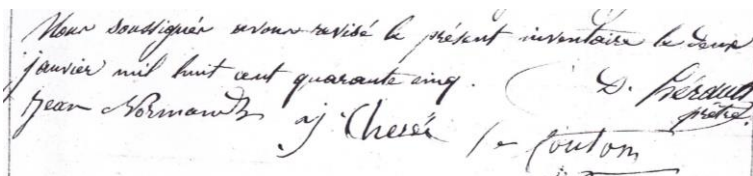 Nous soussignés avons revisé le présent inventaire le deux
janvier mil huit cent quarante cinq. D. Hérault
prêtre.
Jean Normand J. Cheré